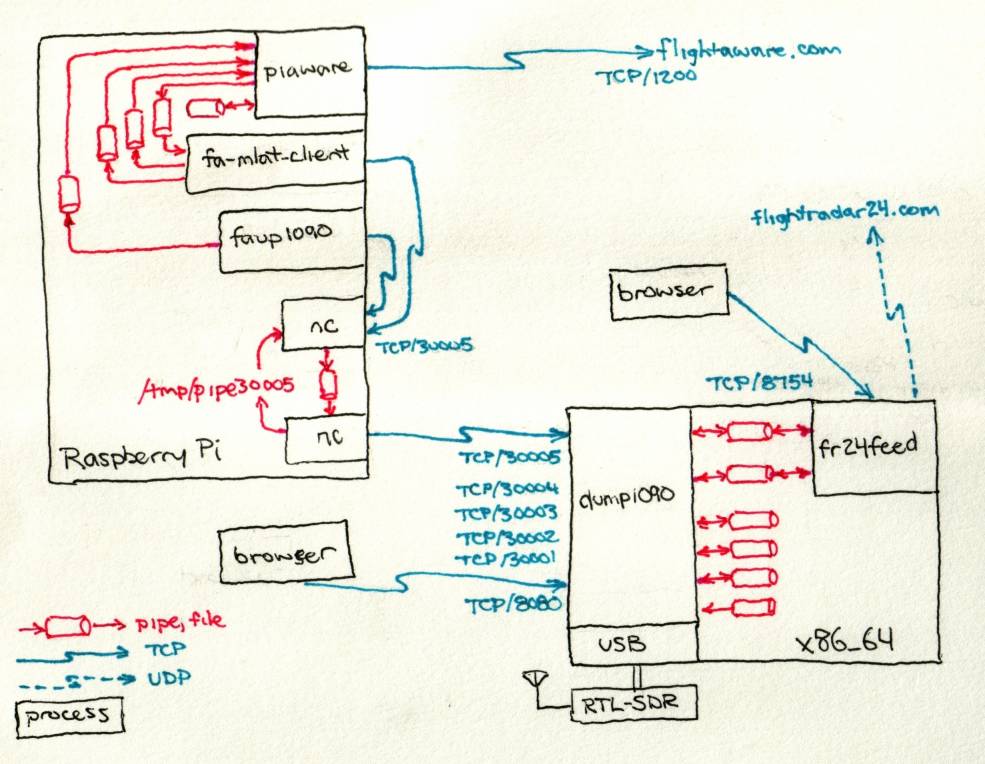 piaware
flightaware.com
TCP/1200
fa-mlat-client
faup1090
flightradar24.com
browser
nc
TCP/30005
/tmp/pipe30005
TCP/8754
nc
Raspberry Pi
TCP/30005
TCP/30004
TCP/30003
TCP/30002
TCP/30001
dump1090
fr24feed
browser
TCP/8080
pipe, file
TCP
UDP
process
USB
x86_64
RTL-SDR